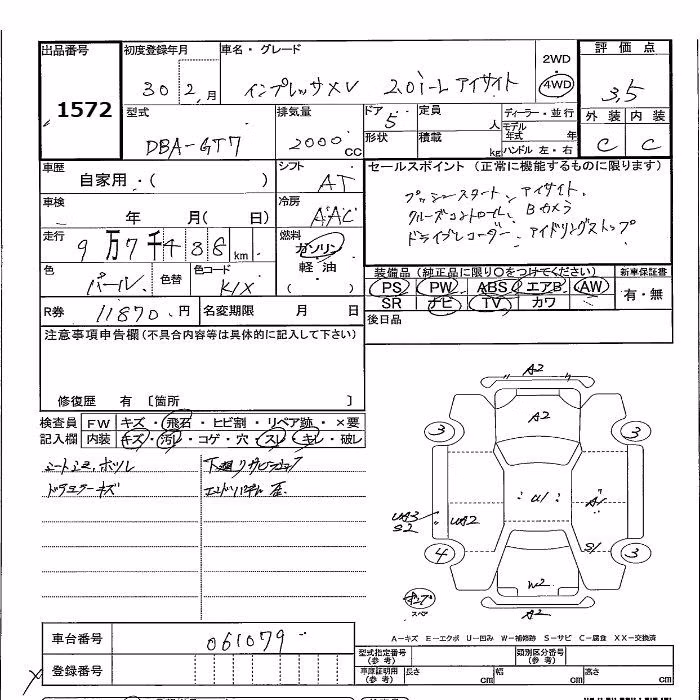 出品番号 初度登録年月 車名・グレード 2WD 評価点
1572 30 2 月 インプレッサXV 2.0i-L アイサイト ・ 4WD 3.5
型式 排気量 ドア・・ 定員 ディーラー・並行 外装 内装
DBA-GT7 2000 cc 5 人 モデル年式 年 C C
形状 積載 kg ハンドル 左・右
車歴 シフト セールスポイント (正常に機能するものに限ります)
自家用・( ) AT プッシュスタート、アイサイト、
車検 冷房 クルーズコントロール、Bカメラ
年 月( 日) AAC ドライブレコーダー、アイドリングストップ
走行 燃料
9万7千488 km ガソリン
軽・油
( )
色 色替 色コード 装備品 (純正品に限り○をつけてください) 新車保証書
パール K1X PS PW ABS エアB AW 有・無
SR ナビ TV カワ
R券 11870 円 名変期限 月 日 後日品
注意事項申告欄(不具合内容等は具体的に記入して下さい)
修復歴 有 〔箇所 〕
検査員 FW キズ・飛石・ヒビ割・リペア跡・×要
記入欄 内装 キズ・汚レ・コゲ・穴・スレ・キレ・破レ
下廻リサビ
キズ
A2
A2
3 3
U1 A1
UA3 S2 UA2
4 S1 3
W2
A2
スペ
A－キズ E－エクボ U－凹み W－補修跡 S－サビ C－腐食 XX－交換済
車台番号 061079
登録番号
型式指定番号 (参考) 類別区分番号 (参考)
車庫証明用 (参考) 長さ cm 幅 cm 高さ cm